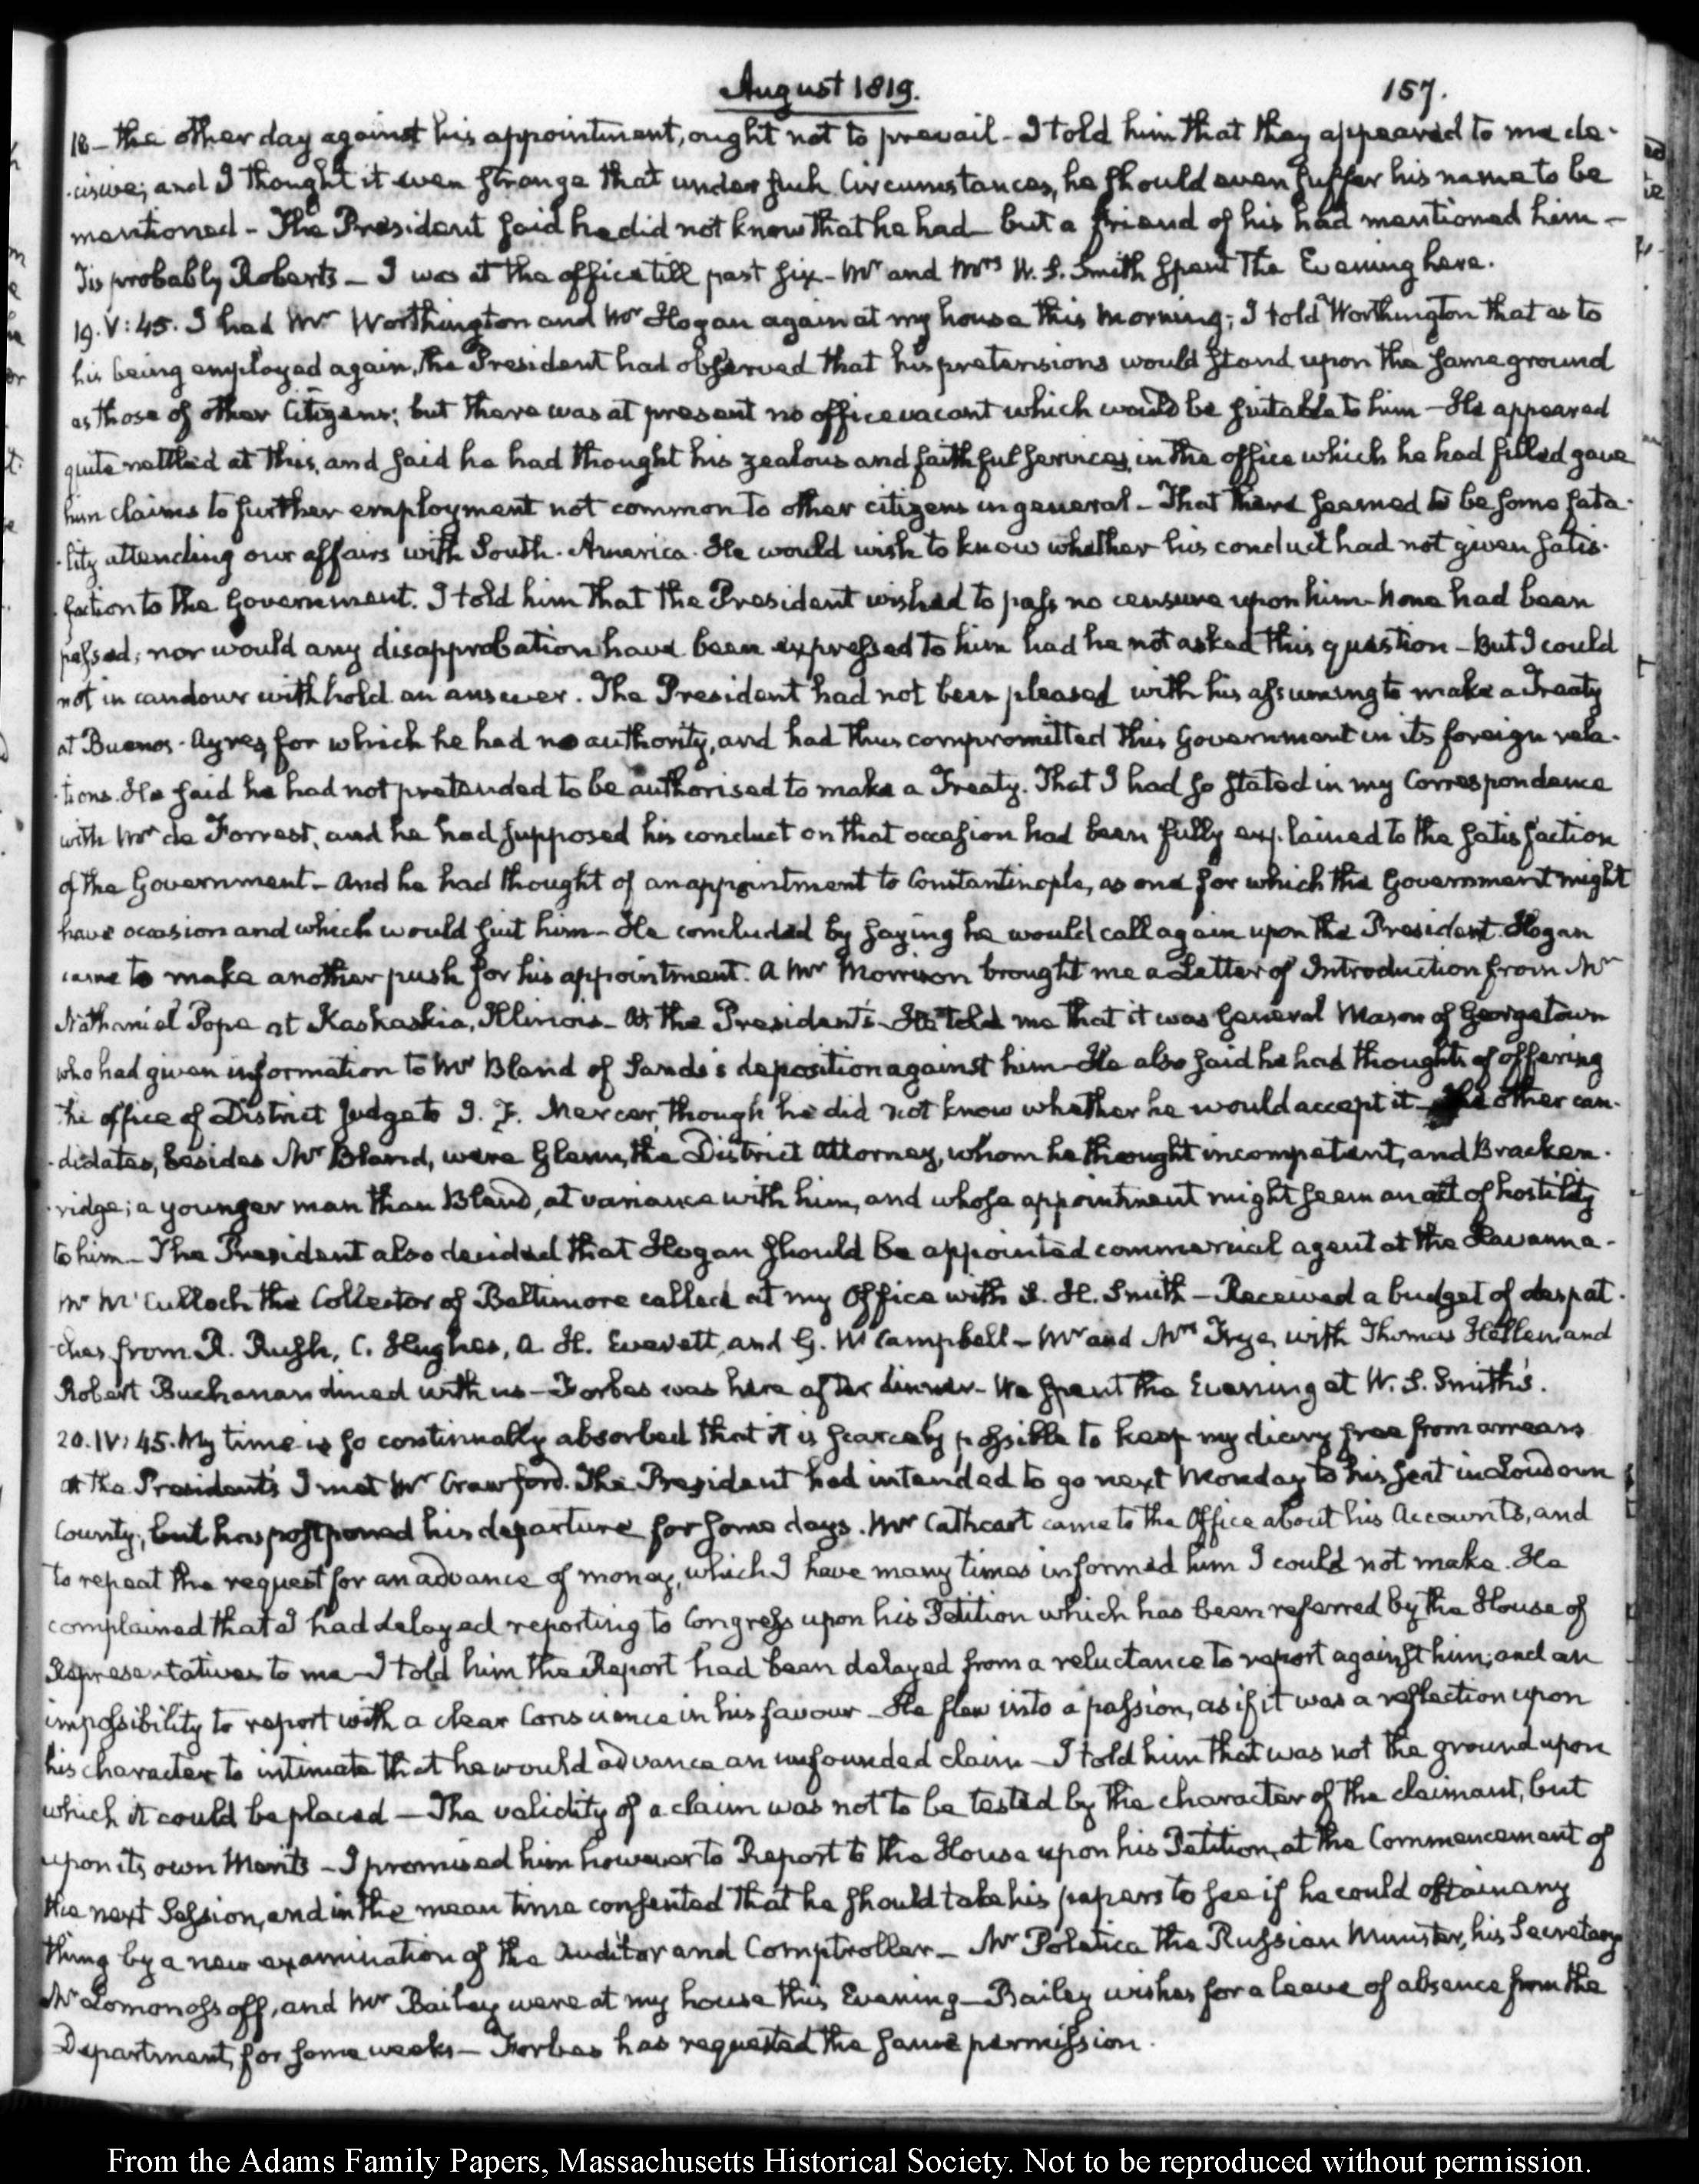 August 1819.
157.
18 – the other day against his appointment, ought not to prevail – I told him that they appeared to me de-
-cisive; and I thought it even strange that under such Circumstances, he should even suffer his name to be
mentioned – The President said he did not know that he had – but a friend of his had mentioned him –
Tis probably Roberts – I was at the office till past six – Mr and Mrs W. S. Smith spent The Evening here.
19. V:45. I had Mr Worthington and Mr Hogan again at my house this Morning; I told Worthington that as to
his being employed again, the President had observed that his pretensions would stand upon the same ground
as those of other Citizens; but there was at present no office vacant which would be suitable to him – He appeared
quite nettled at this, and said he had thought his zealous and faithful services, in the office which he had filled gave
him claims to further employment not common to other citizens in general – That there seemed to be some fata-
-lity attending our affairs with South-America. He would wish to know whether his conduct had not given satis-
-faction to the Government. I told him that the President wished to pass no censure upon him – None had been
passed; nor would any disapprobation have been expressed to him had he not asked this question – But I could
not in candour withhold an answer. The President had not been pleased with his assuming to make a Treaty
at Buenos-Ayres, for which he had no authority, and had thus compromitted this Government in its foreign rela-
-tions. He said he had not pretended to be authorised to make a Treaty. That I had so stated in my Correspondence
with Mr de Forrest, and he had supposed his conduct on that occasion had been fully explained to the satisfaction
of the Government – And he had thought of an appointment to Constantinople, as one for which the Government might
have occasion and which would suit him – He concluded by saying he would call again upon the President. Hogan
came to make another push for his appointment. A Mr Morrison brought me a Letter of Introduction from Mr
Nathaniel Pope at Kaskaskia, Illinois – At the President's – He told me that it was General Mason of Georgetown
who had given information to Mr Bland of Sands's deposition against him – He also said he had thoughts of offering
the office of District Judge to J. F. Mercer, though he did not know whether he would accept it – The other can-
-didates, besides Mr Bland, were Glenn, the District Attorney, whom he thought incompetent, and Bracken-
-ridge; a younger man than Bland, at variance with him, and whose appointment might seem an act of hostility
to him – The President also decided that Hogan should be appointed commercial agent at the Havanna –
Mr McCulloch the Collector of Baltimore called at my Office with S. H. Smith – Received a budget of despat-
-ches from R. Rush, C. Hughes, A. H. Everett, and G. W Campbell – Mr and Mrs Frye, with Thomas Hellen, and
Robert Buchanan dined with us – Forbes was here after dinner – We spent the Evening at W. S. Smith's.
20. IV:45. My time is so continually absorbed that it is scarcely possible to keep my diary free from arrears
At the President's I met Mr Crawford. The President had intended to go next Monday to his seat in Loudoun
County, but has postponed his departure for some days. Mr Cathcart came to the Office about his Accounts, and
to repeat the request for an advance of money, which I have many times informed him I could not make. He
complained that I had delayed reporting to Congress upon his Petition which has been referred by the House of
Representatives to me – I told him the Report had been delayed from a reluctance to report against him; and an
impossibility to report with a clear Conscience in his favour – He flew into a passion, as if it was a reflection upon
his character to intimate that he would advance an unfounded claim – I told him that was not the ground upon
which it could be placed – The validity of a claim was not to be tested by the character of the claimant, but
upon its own Merits – I promised him however to Report to the House upon his Petition, at the Commencement of
the next Session, and in the mean time consented that he should take his papers to see if he could obtain any
thing by a new examination of the Auditor and Comptroller – Mr Poletica the Russian Minister, his Secretary
Mr Lomonossoff, and Mr Bailey were at my house this Evening – Bailey wishes for a leave of absence from the
Department, for some weeks – Forbes has requested the same permission.
From the Adams Family Papers, Massachusetts Historical Society. Not to be reproduced without permission.